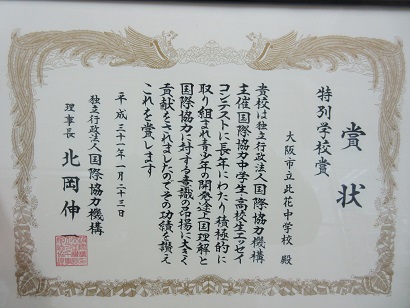 賞状
特別学校賞
大阪市立此花中学校 殿
貴校は独立行政法人国際協力機構
主催国際協力中学生・高校生エッセイ
コンテストに長年にわたり積極的に
取り組まれ青少年の開発途上国理解と
国際協力に対する意識の昂揚に大きく
貢献をされましたのでその功績を讃え
これを賞します
平成三十一年一月二十三日
独立行政法人国際協力機構
理事長 北岡伸一